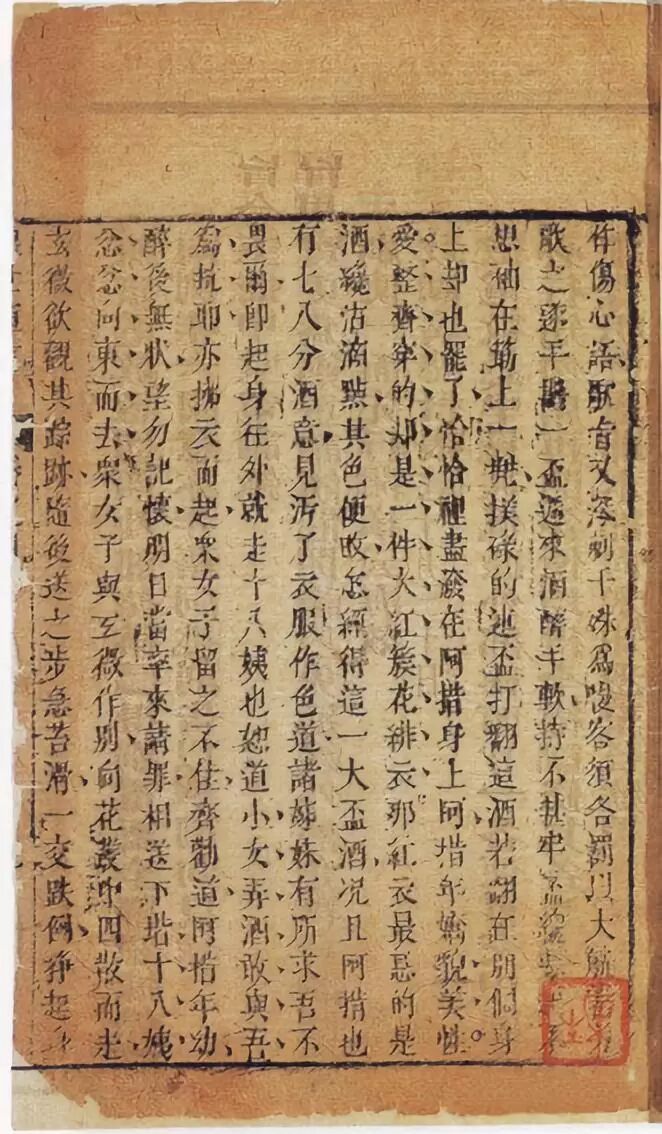 作傷心語歌旨又深刺于姝為慢客須各罰以大觥當
歌之遂手斟一盃遞來酒醉手軟持不甚牢
想袖在筯上一兜撲碌的連盃打翻這酒若翻在別個身
上却也罷了恰恰裡盡潑在阿措身上阿措年嬌貌美性
愛整齊穿的却是一件大紅簇花緋衣那紅衣最忌的是
酒纔沾滴點其色便敗怎經得這一大盃酒况且阿措也
有七八分酒意見汚了衣服作色道諸姊妹有所求吾不
畏爾卽起身往外就走十八姨也怒道小女弄酒敢與吾
爲抗耶亦拂衣而起衆女子留之不住齊勸道阿措年幼
醉後無狀望勿記懷明日當率來請罪相送下堦十八姨
忿忿向東而去衆女子與玄微作別向花叢中四散而走
玄微欲觀其踪跡隨後送之步急苔滑一交跌倒掙起身